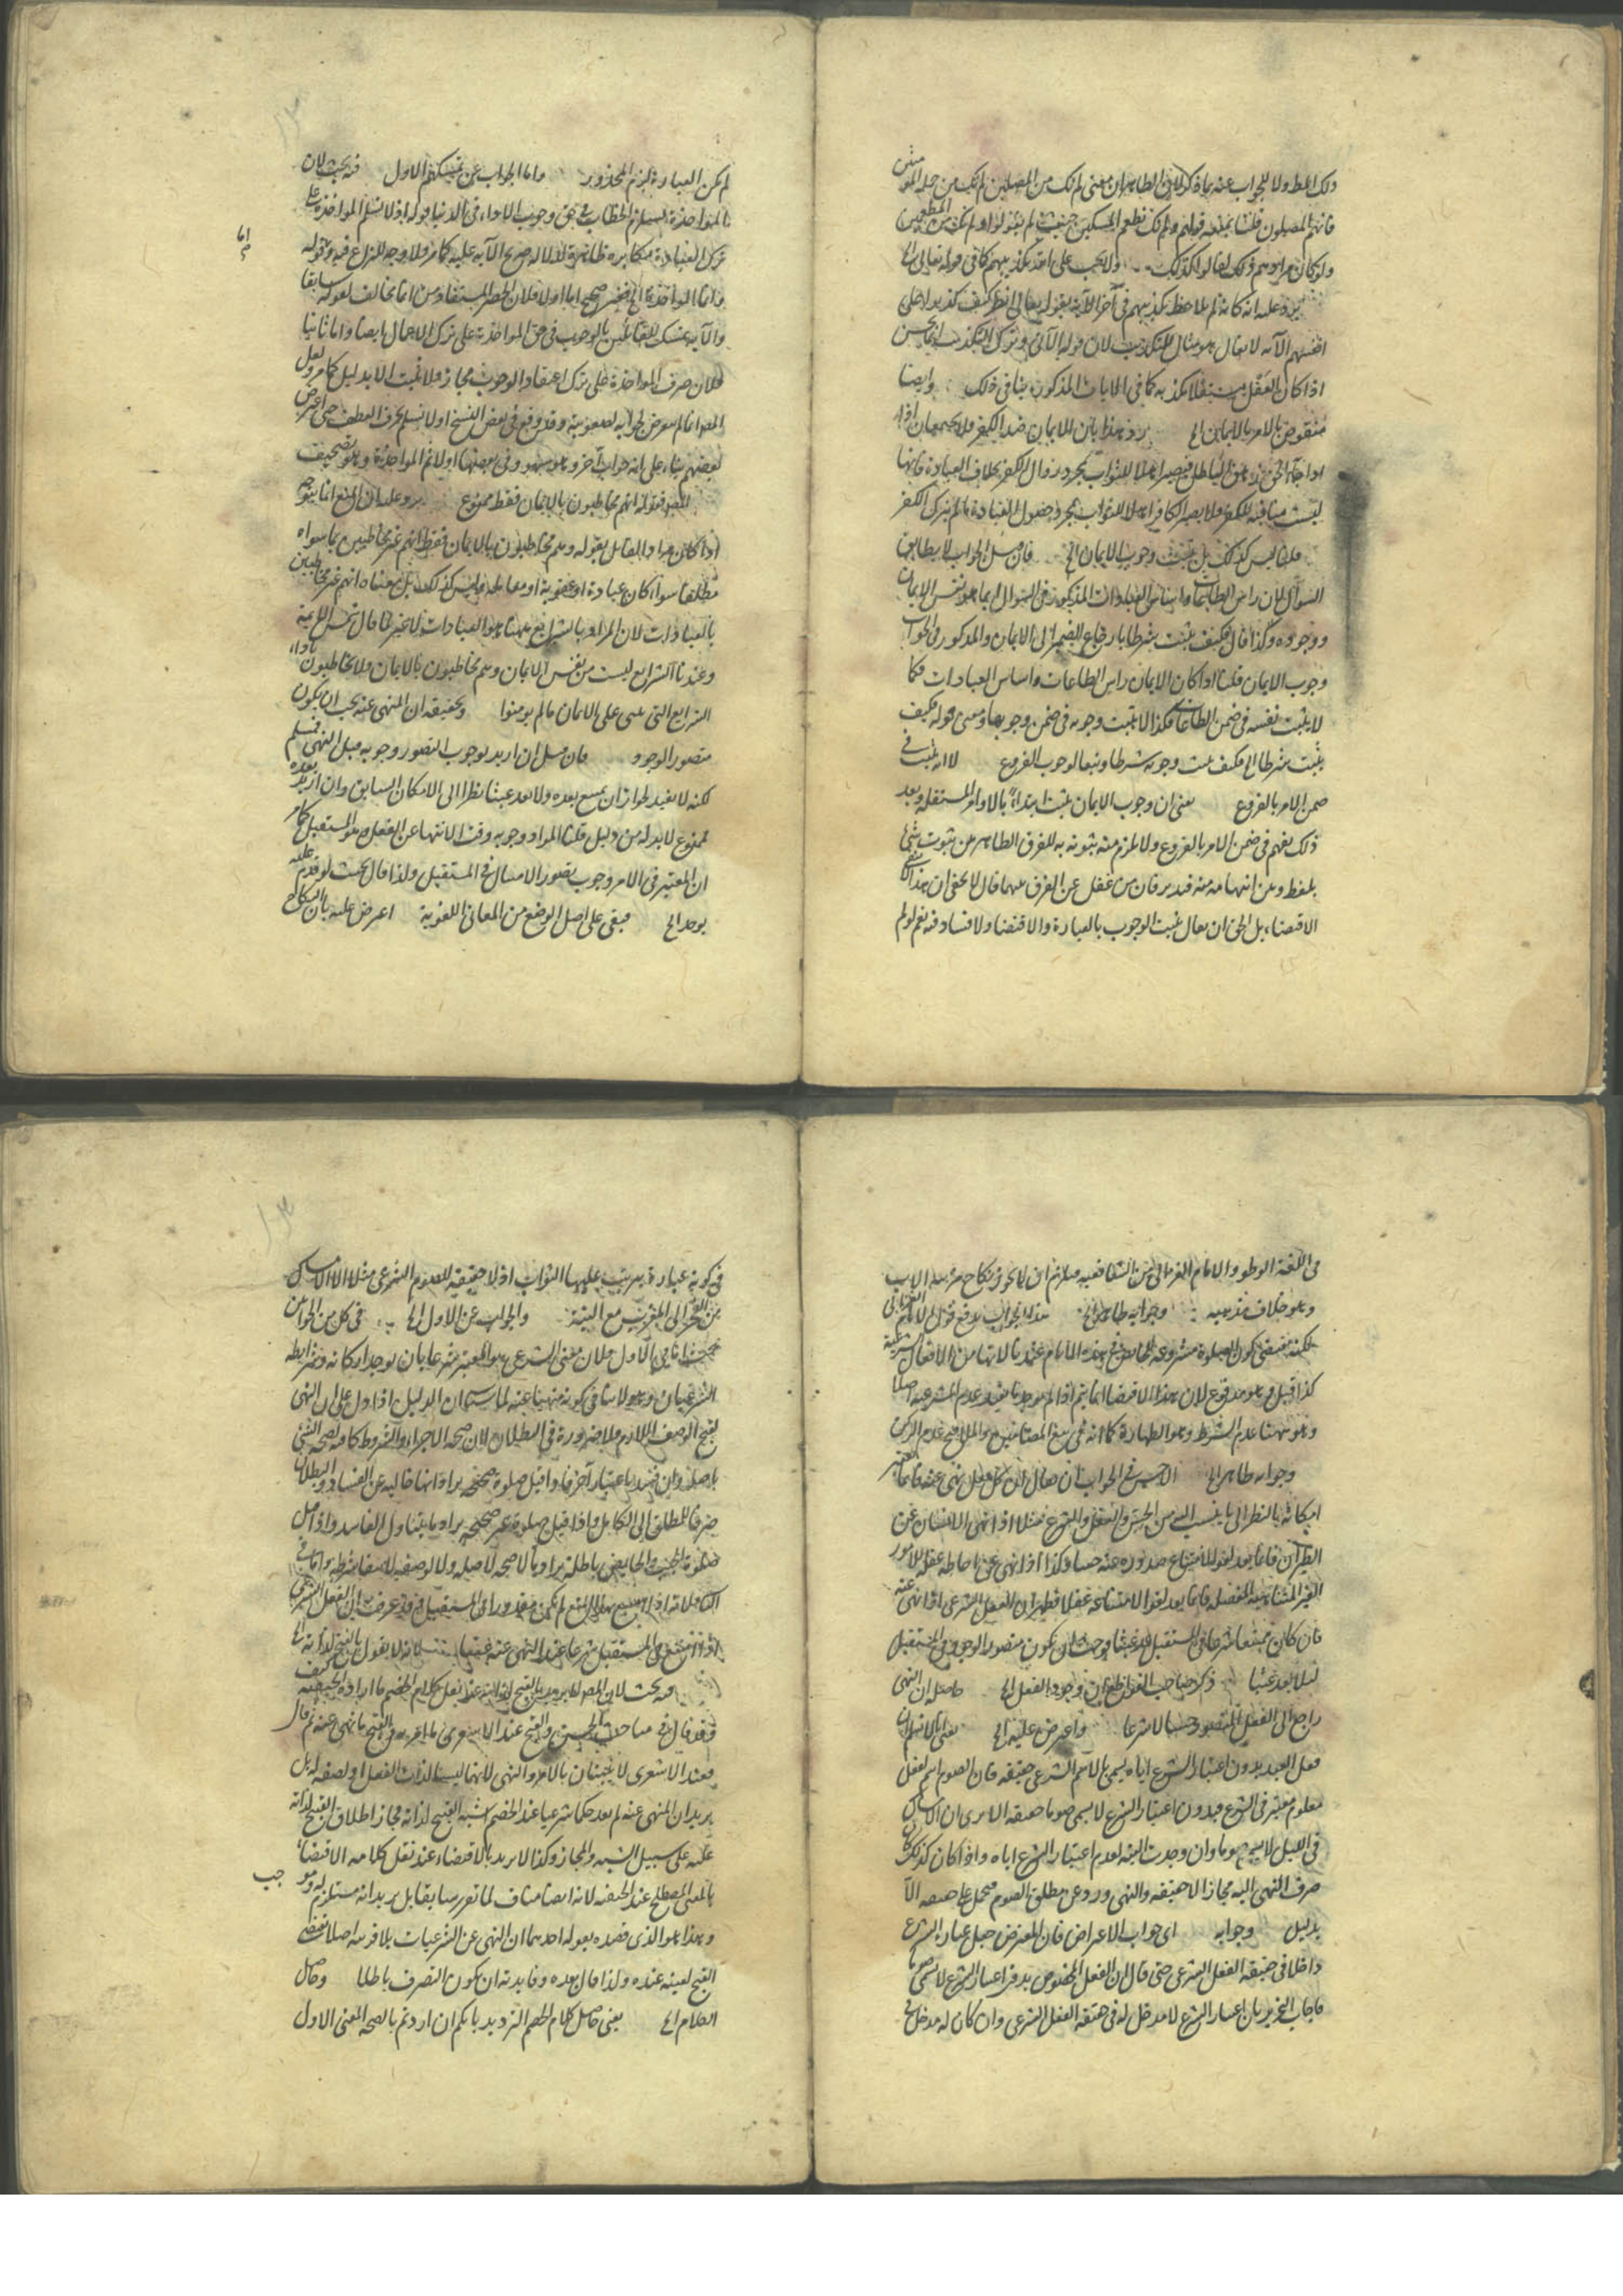 ذلك المط ولا للجواب عنه بما ذكر لان الظاهر ان معنى لم نك من المصلين لم نكن من جملة المؤمنين
فانهم المصلون قلنا يمنعه قولهم ولم نك نطعم المسكين حيث لم يقولوا ولم نكن من المطعمين
ولو كان مرادهم ذلك لقالوا كذلك ولا يجب على الله تكذيبهم كما في قوله تعالى الخ
يرد عليه انه كانه لم يلاحظ تكذيبهم في آخر الآية بقوله تعالى انظر كيف كذبوا على
انفسهم الآية لا يقال هو مثال للتكذيب لان قوله الآتي وترك التكذيب انما يحسن
اذا كان العقل مستقلا بكذبه كما في الايات المذكورة ينافي ذلك وايضا
منقوض بالامر بالايمان الخ رد هذا بان الايمان ضد الكفر فلا يجتمعان اذا
اذا جاء الحق زهق الباطل فيصير اهلا للثواب بمجرد زوال الكفر بخلاف العبادة فانها
ليست منافية للكفر فلا يصير الكافر اهلا للثواب بمجرد حصول العبادة ما لم يترك الكفر
قلنا ليس كذلك بل يثبت وجوب الايمان الخ فان قيل الجواب لا يطابق
السؤال لان راس الطاعات واساس العبادات المذكور في السؤال انما هو نفس الايمان
ووجوده ولذا قال فكيف يثبت شرطا بارجاع الضمير الى الايمان والمذكور في الجواب
وجوب الايمان قلنا اذا كان الايمان راس الطاعات واساس العبادات فكما
لا يثبت نفسه في ضمن الطاعات فكذا لا يثبت وجوبه في ضمن وجوبها ومعنى قوله فكيف
يثبت شرطا الخ فكيف يثبت وجوبه شرطا وتبعا لوجوب الفروع لا انه يثبت في
ضمن الامر بالفروع يعني ان وجوب الايمان يثبت ابتداء بالاوامر المستقلة وبعد
ذلك يفهم في ضمن الامر بالفروع ولا يلزم منه ثبوته به للفرق الظاهر من ثبوت شيء
بلفظ وبين انفهامه منه فتدبر فان من غفل عن الفرق بينهما قال لا يخفى ان هذا ينافي
الاقتضاء بل الحق ان يقال يثبت الوجوب بالعبارة والاقتضاء ولا فساد فيه نعم لو لم
لم يكن العبارة يلزم المحذور واما الجواب عن تمسكهم الاول فيه بحث لان
المؤاخذة يستلزم الخطاب في حق وجوب الاداء في الدنيا قوله اذ لا نسلم المؤاخذة على
ترك العبادة مكابرة ظاهرة لدلالة صريح الآية عليه كما مر ولا وجه للنزاع فيه وقوله
وانما المؤاخذة الخ غير صحيح اما اولا فلان الحصر المستفاد من انما يخالف لقوله سابقا
والآية تمسك للقائلين بالوجوب في حق المؤاخذة على ترك الاعمال ايضا واما ثانيا
فلان صرف المؤاخذة على ترك اعتقاد الوجوب مجاز فلا يثبت الا بدليل كما مر ولعل
المص انما لم يتعرض لجوابه لصعوبته وقد وقع في بعض النسخ اولا نسلم بحرف العطف حتى اعترض
بعضهم بناء على انه جواب آخر وهو سهو وفي بعضها اولا ثم المؤاخذة وهو تصحيف
المص فقوله انهم مخاطبون بالايمان فقط ممنوع يرد عليه ان المنع انما يتوجه
اذا كان مراد القائل بقوله وهم مخاطبون بالايمان فقط انهم غير مخاطبين بما سواه
مطلقا سواء كان عبادة او عقوبة او معاملة وليس كذلك بل معناه انهم غير مخاطبين
بالعبادات لان المراد بالشرائع ههنا هو العبادات لا غير كما قال شمس الائمة
وعندنا الشرائع ليست من نفس الايمان وهم مخاطبون بالايمان ولا يخاطبون باداء
الشرايع التي تبنى على الايمان ما لم يؤمنوا وتحقيقه ان المنهى عنه يجب ان يكون
متصور الوجود فان قيل ان اريد بوجوب التصور وجوبه قبل النهى فمسلم
لكنه لا يفيد لجواز ان يمتنع بعده ولا يعد عبثا نظرا الى الامكان السابق وان اريد بعده
فممنوع لا بد له من دليل قلنا المراد وجوبه وقت الانتهاء عن الفعل وهو المستقبل كما مر
ان المعتبر في الامر وجوب تصور الامتثال في المستقبل ولذا قال بحيث لو قدم عليه
يوجد الخ فبقى على اصل الوضع من المعاني اللغوية اعترض عليه بان النكاح
اما
في اللغة الوطء والامام الغزالي من الشافعية فيلزم ان لا يجوز نكاح مزنية الاب
وهو خلاف مذهبه وجوابه ظاهر الخ هذا الجواب يدفع قول الامام الغزالي
لكنه يقتضى كون الصلوة مشروعة للحائض في هذه الايام عندنا لانها من الافعال الشرعية
كذا قيل وهو مدفوع لان هذا الاقتضاء انما يتم اذا لم يوجد ما يفيد عدم المشروعية اصلا
وهو ههنا عدم الشرط وهو الطهارة كما انه في بيع المضامين والملاقيح عدم الركن
وجوابه ظاهر الخ الاحسن في الجواب ان يقال ان كل فعل نهى عنه فانما يعتبر
امكانه بالنظر الى ما ينسب اليه من الحس والعقل والشرع فمثلا اذا نهى الانسان عن
الطيران فانما يعد لغوا لامتناع صدوره عنه حسا وكذا اذا نهى عن احاطة عقله للامور
الغير المتناهية المفصلة فانما يعد لغوا لامتناعه عقلا فظهر ان الفعل الشرعى اذا نهى عنه
فان كان ممتنعا شرعا في المستقبل يعد عبثا فوجب ان يكون متصور الوجود في المستقبل
لئلا يعد عبثا ذكر صاحب القواطع ان وجود الفعل الخ حاصله ان النهى
راجع الى الفعل المتصور حسا لا شرعا واعترض عليه الخ يعنى لا نسلم ان
فعل العبد بدون اعتبار الشرع اياه يسمى بالاسم الشرعى حقيقة فان الصوم اسم لفعل
معلوم معتبر في الشرع فبدون اعتبار الشرع لا يسمى صوما حقيقة الا يرى ان الامساك
في الليل لا يسمى صوما وان وجدت النية لعدم اعتبار الشرع اياه واذا كان كذلك كان
صرف النهى اليه مجازا لا حقيقة والنهى ورد عن مطلق الصوم فيحمل على حقيقته الا
بدليل وجوابه اى جواب الاعتراض فان المعترض جعل اعتبار الشرع
داخلا في حقيقة الفعل الشرعى حتى قال ان الفعل المخصوص بدون اعتبار الشرع لا يسمى صوما
فاجاب التحرير بان اعتبار الشرع لا مدخل له في حقيقة الفعل الشرعى وان كان له مدخل في
في كونه عبادة يترتب عليها الثواب اذ لا حقيقة للصوم الشرعى مثلا الا الامساك
من الفجر الى المغرب مع النية والجواب عن الاول الخ في كل من الجوابين
بحث اما في الاول فلان معنى الشرعى هو المعتبر شرعا بان يوجد اركانه وشرائطه
الشرعيان وهو لا ينافى كونه منهيا عنه لما سبق ان الدليل اذا دل على ان النهى
لقبح الوصف اللازم فلا ضرورة في البطلان لان صحة الاجزاء والشروط كافية لصحة الشئ
باصله وان فسد باعتبار آخر فاذا قيل صلوة صحيحة يراد انها خالية عن الفساد والبطلان
صرفا للمطلق الى الكامل واذا قيل صلوة غير صحيحة يراد ما يتناول الفاسد واذا قيل
صلوة الجنب والحائض باطلة يراد بها لا صحة لاصله ولا لوصفه لانتفاء شرطه واما في
الثاني فلانه اذا امتنع بهذا المنع لم يكن مقدورا في المستقبل وقد عرفت ان الفعل الشرعى
اذا امتنع في المستقبل شرعا عند النهى عنه عبثا لانه لا يقول بالقبح لذاته الخ
فيه بحث لان المص لا يريد بالقبح لذاته عند نقل كلام الخصم ما اراده الحنفية كيف
وقد قال في مباحث الحسن والقبح عند الاشعرى ما امر به والقبح ما نهى عنه ثم قال
فعند الاشعرى لا يثبتان بالامر والنهى لانهما ليسا لذات الفعل او لصفة له بل
يريد ان المنهى عنه لم يعد حكما شرعيا عند الخصم اشبه القبيح لذاته فجاز اطلاق القبيح لذاته
عليه على سبيل التشبيه والمجاز وكذا لا يريد بالاقتضاء عند نقل كلامه الاقتضاء
بالمعنى المصطلح عند الحنفية لانه ايضا مناف لما تقرر سابقا بل يريد انه مستلزم له وموجب
وهذا هو الذى قصده بقوله احدهما ان النهى عن الشرعيات بلا قرينة اصلا يقتضى
القبح لعينه عنده ولذا قال بعده وفائدته ان يكون التصرف باطلا وحاصل
الكلام الخ يعنى حاصل كلام الخصم الترديد بانكم ان اردتم بالصحة المعنى الاول